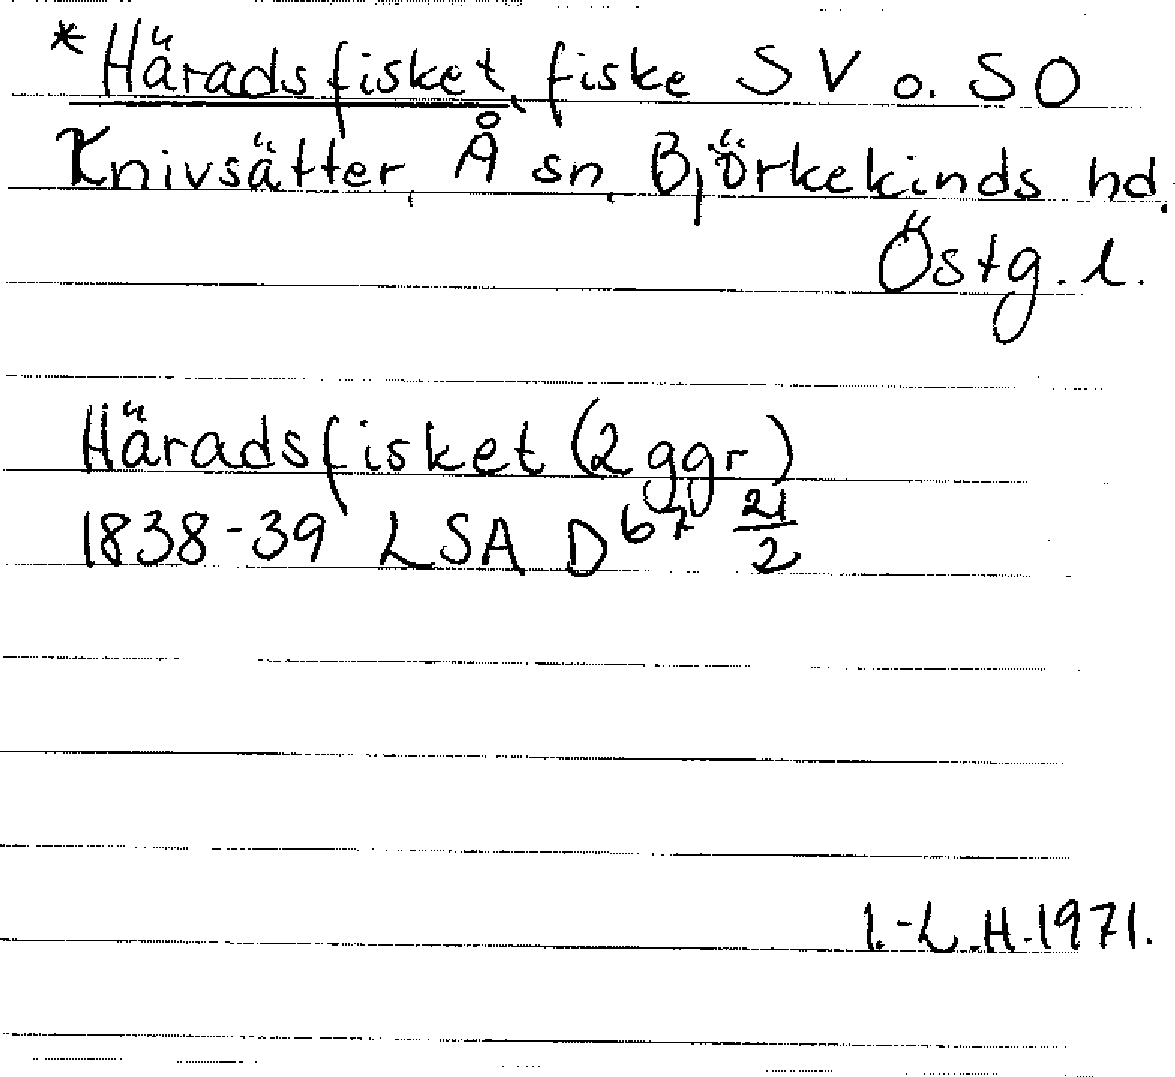 *Häradsfisket, fiske SV o. SO
Knivsätter, Å sn, Björkekinds hd.
Östg. l.
Häradsfisket (2 ggr)
1838-39 LSA D67 21/2
I.-L.H. 1971.